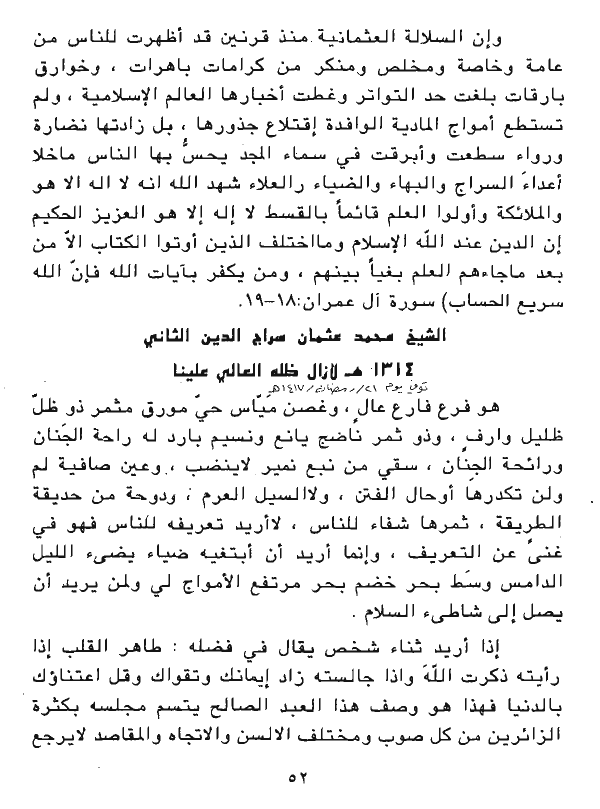 وإن السلالة العثمانية منذ قرنين قد أظهرت للناس من
عامة وخاصة ومخلص ومنكر من كرامات باهرات ، وخوارق
بارقات بلغت حد التواتر وغطت أخبارها العالم الإسلامية ، ولم
تستطع أمواج المادية الوافدة إقتلاع جذورها ، بل زادتها نضارة
ورواء سطعت وأبرقت في سماء المجد يحسُّ بها الناس ماخلا
أعداءَ السراج والبهاء والضياء رالعلاء شهد الله انه لا اله الا هو
والملائكة وأولوا العلم قائماً بالقسط لا إله إلا هو العزيز الحكيم
إن الدين عند الله الإسلام ومااختلف الذين أوتوا الكتاب الاّ من
بعد ماجاءهم العلم بغياً بينهم ، ومن يكفر بآيات الله فإنّ الله
سريع الحساب) سورة آل عمران:١٨–١٩.
الشيخ محمد عثمان سراج الدين الثاني
١٣١٤ هـ لازال ظله العالي علينا
توفي يوم ٢١/رمضان/١٤١٧هـ
هو فرع فارع عالٍ ، وغصن مَيّاس حيّ مورق مثمر ذو ظلّ
ظليل وارفٍ ، وذو ثمر ناضج يانع ونسيم بارد له راحة الجَنان
ورائحة الجِنان ، سقي من نبع نمير لاينضب ، وعين صافية لم
ولن تكدرها أوحال الفتن ، ولاالسيل العرم ، ودوحة من حديقة
الطريقة ، ثمرها شفاء للناس ، لاأريد تعريفه للناس فهو في
غنىً عن التعريف ، وإنما أريد أن أبتغيه ضياء يضىء الليل
الدامس وسَط بحر خضم بحر مرتفع الأمواج لي ولمن يريد أن
يصل إلى شاطىء السلام .
إذا أريد ثناء شخص يقال في فضله : طاهر القلب إذا
رأيته ذكرت اللّهَ واذا جالسته زاد إيمانك وتقواك وقل اعتناؤك
بالدنيا فهذا هو وصف هذا العبد الصالح يتسم مجلسه بكثرة
الزائرين من كل صوب ومختلف الالسن والاتجاه والمقاصد لايرجع
٥٢